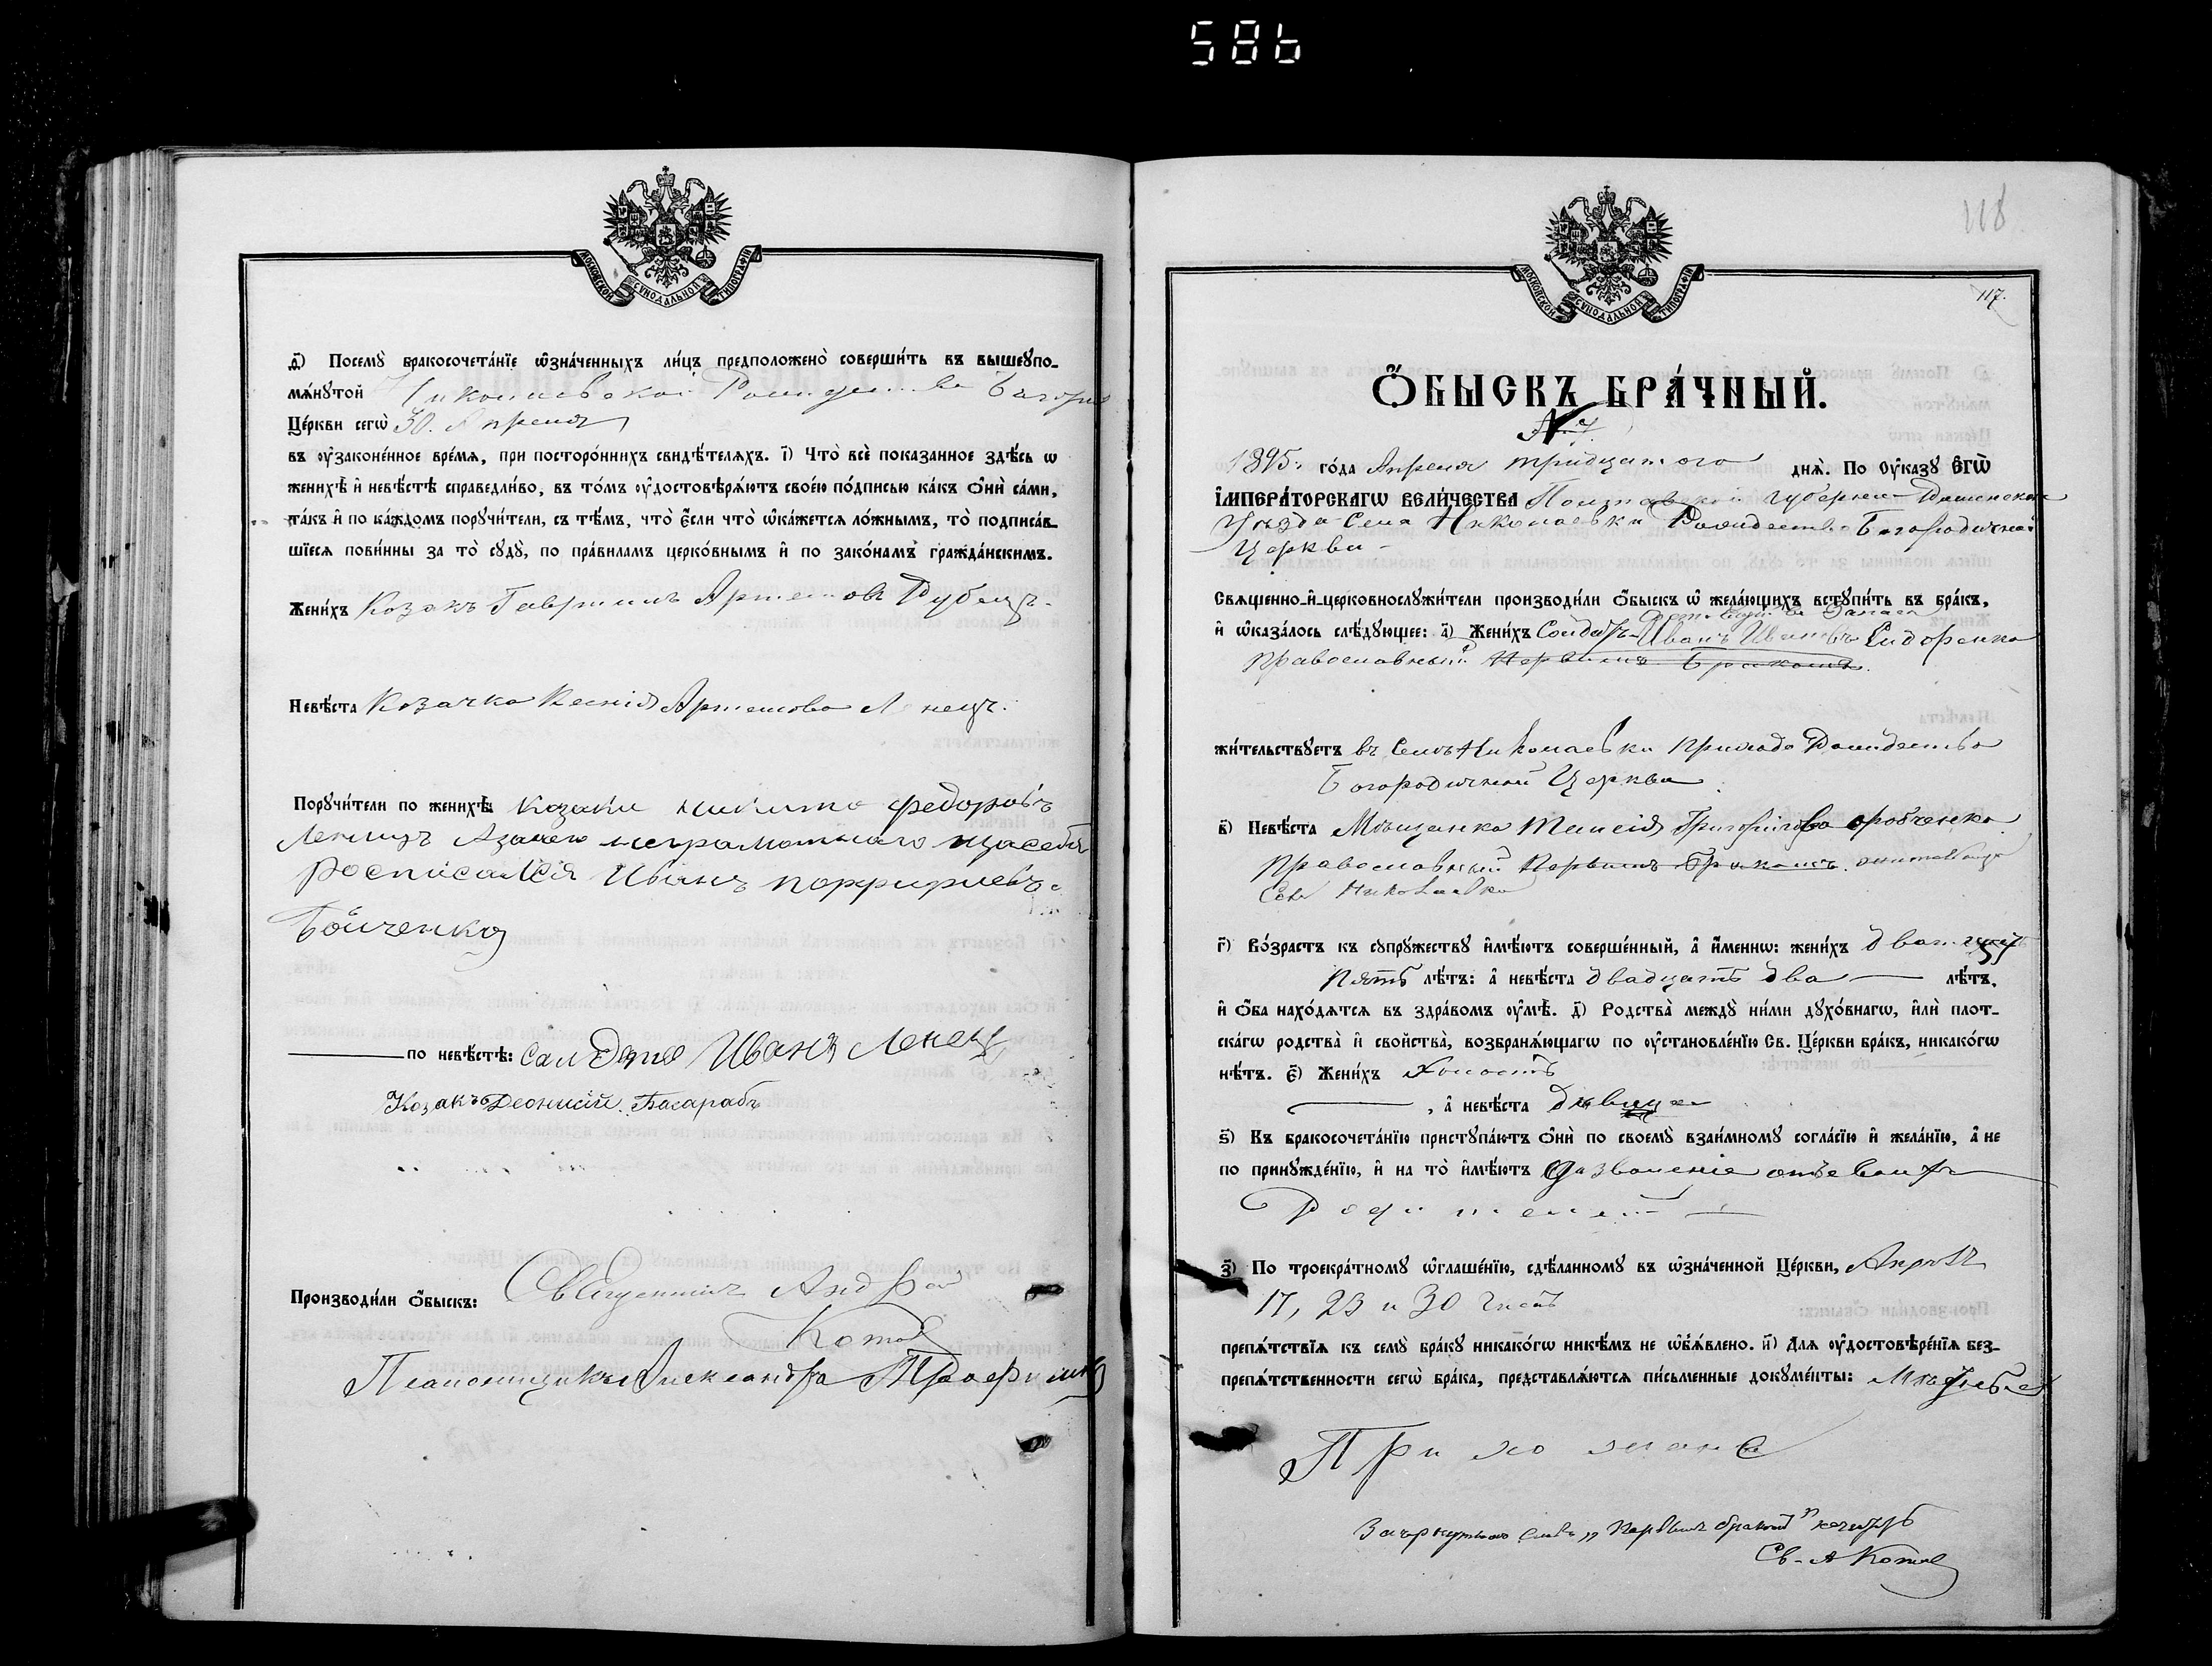 586
МОСКОВСКОЙ СУНОДАЛЬНОЙ ТИПОГРАФІИ
д҃) Посемꙋ̀ бракосочета́нїе ѡ҆зна́ченныхъ ли́цъ предположено̀ соверши́ть въ вышеꙋпо-
мѧ́нꙋтой Николаевской Рождество Богород
Це́ркви сегѡ̀ 30. Апреля
въ ᲂу҆законе́нное вре́мѧ, при посторо́ннихъ свидѣ́телѧхъ. і҃) Что̀ всѐ показанное здѣ́сь ѡ
женихѣ̀ и҆ невѣ́стѣ справедли́во, въ то́мъ ᲂу҆достовѣрѧ́ютъ свое́ю по́дписью ка́къ ѻ҆нѝ са́ми,
та́къ и҆ по ка́ждомъ порꙋчи́тели, съ тѣ́мъ, что̀ є҆́сли что̀ ѡ҆ка́жетсѧ ло́жнымъ, то̀ подписа́в-
шїесѧ пови́нны за то̀ сꙋдꙋ̀, по пра́виламъ церко́внымъ и҆ по зако́намъ гражда́нскимъ.
Жени́хъ Козакъ Гавриилъ Артемовъ Рубецъ.
Невѣ́ста Козачка Ксенія Артемова Ленецъ.
Порꙋчи́тели по женихѣ̀ Казаки никита федоровъ
Ленецъ Азанего неграмотнаго изасебя
Росписался Иванъ порфириевъ
Бойченко
по невѣ́стѣ: Салдатъ Иванъ Ленец
Козакъ Деонисій Басарабъ
Производи́ли ѻ҆́быскъ: Священникъ Андрей
Котов
Псаломщикъ Александръ
118
МОСКОВСКОЙ СУНОДАЛЬНОЙ ТИПОГРАФІИ
117.
Ѻ҆́БЫСКЪ БРА́ЧНЫЙ.
№ 7.
1895. го́да Апреля тридцатого днѧ̀. По ᲂу҆казꙋ Є҆ГѠ̀
И҆МПЕРА́ТОРСКАГѠ ВЕЛИ́ЧЕСТВА Полтавской губерніи Роменскаго
Уезда Села Николаевки Рождество Богородичной
Церкви -
Свѧще́нно-и҆-церковнослꙋжи́тели производи́ли ѻ҆́быскъ ѡ҆ жела́ющихъ встꙋпи́ть въ бра́къ,
и҆ ѡ҆каза́лось слѣ́дꙋющее: а҃) Жени́хъ Солдатъ Иванъ Ивановъ Сидоренко
Православный Первымъ Бракомъ.
жи́тельствꙋетъ въ Селѣ Николаевки прихода Рождество
Богородичной Церкви
в҃) Невѣ́ста Мѣщанка Таисія Григоріева
Православный Первымъ Бракомъ.
Села Николаевки
г҃) Во́зрастъ къ сꙋпрꙋ́жествꙋ и҆мѣ́ютъ соверше́нный, а҆ и҆́менно: жени́хъ двадцать
пять лѣ́тъ: а҆ невѣ́ста двадцать два лѣ́тъ,
и҆ ѻ҆́ба нахо́дѧтсѧ въ здра́вомъ ᲂу҆мѣ̀. д҃) Родства̀ междꙋ̀ ни́ми дꙋхо́внагѡ, и҆лѝ плот-
ска́гѡ родства̀ и҆ сво́йства̀, возбранѧ́ющагѡ по ᲂу҆становле́нїю Св. Це́ркви бра́къ, никако́гѡ
нѣ́тъ. є҃) Жени́хъ Холостъ
, а҆ невѣ́ста Дѣвица
ѕ҃) Къ бракосочета́нїю пристꙋпа́ютъ ѻ҆нѝ по своемꙋ̀ взаи́мномꙋ согла́сїю и҆ жела́нїю, а҆ не
по принꙋжде́нїю, и҆ на то̀ и҆мѣ́ютъ дозволеніе отъ своихъ
Родителей
з҃) По троекра́тномꙋ ѡ҆глаше́нїю, сдѣ́ланномꙋ въ ѡ҆зна́ченной Це́ркви, Апрѣля
17, 23 и 30 числъ
препѧ́тствїѧ къ семꙋ̀ бра́кꙋ никако́гѡ никѣ́мъ не ѡ҆б̾ѧ́влено. и҃) Для ᲂу҆достовѣре́нїѧ без-
препѧ́тственности сегѡ̀ бра́ка, представлѧ́ютсѧ пи́сьменные докꙋме́нты:
Приложена
Зачеркнутаго слова „Первымъ бракомъ" нечитать
Св. А Котов